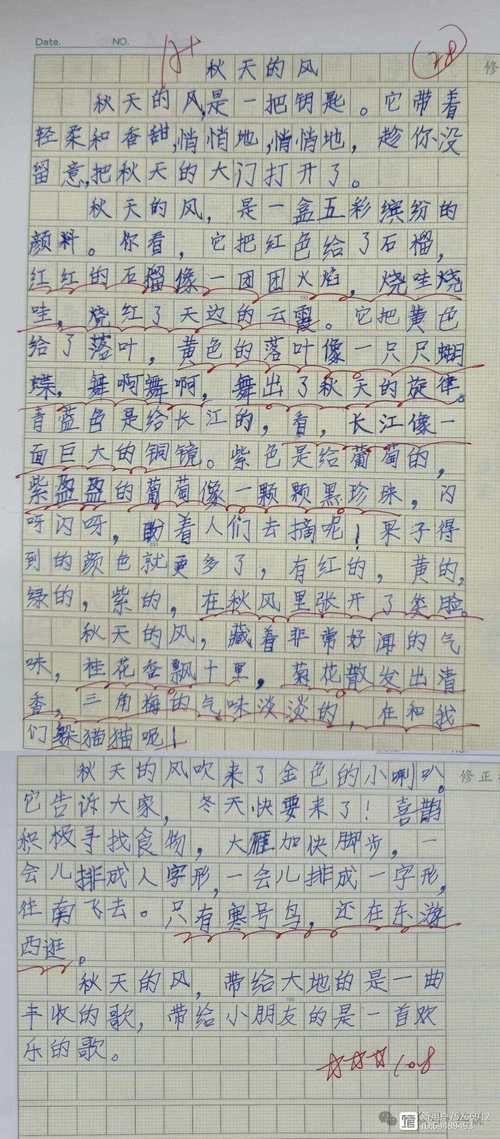 Date. NO.
秋天的风
28
修
秋天的风,是一把钥匙。它带着
轻柔和香甜,悄悄地,悄悄地,趁你没
留意,把秋天的大门打开了。
秋天的风,是一盒五彩缤纷的
颜料。你看,它把红色给了石榴,
红红的石榴像一团团火焰,烧哇烧
哇,烧红了天边的云霞。它把黄色
给了落叶,黄色的落叶像一只只蝴
蝶,舞啊舞啊,舞出了秋天的旋律。
青蓝色是给长江的,看,长江像一
面巨大的铜镜。紫色是给葡萄的,
紫盈盈的葡萄像一颗颗黑珍珠,闪
呀闪呀,盼着人们去摘呢!果子得
到的颜色就更多了,有红的,黄的,
绿的,紫的,在秋风里张开了笑脸。
秋天的风,藏着非常好闻的气
味,桂花香飘十里,菊花散发出清
香,三角梅的气味淡淡的,在和我
们躲猫猫呢!
秋天的风吹来了金色的小喇叭。
修正
它告诉大家,冬天快要来了!喜鹊
积极寻找食物,大雁加快脚步,一
会儿排成人字形,一会儿排成一字形,
往南飞去。只有寒号鸟,还在东游
西逛。
秋天的风,带给大地的是一曲
丰收的歌,带给小朋友的是一首欢
乐的歌。
☆☆☆ 10.8